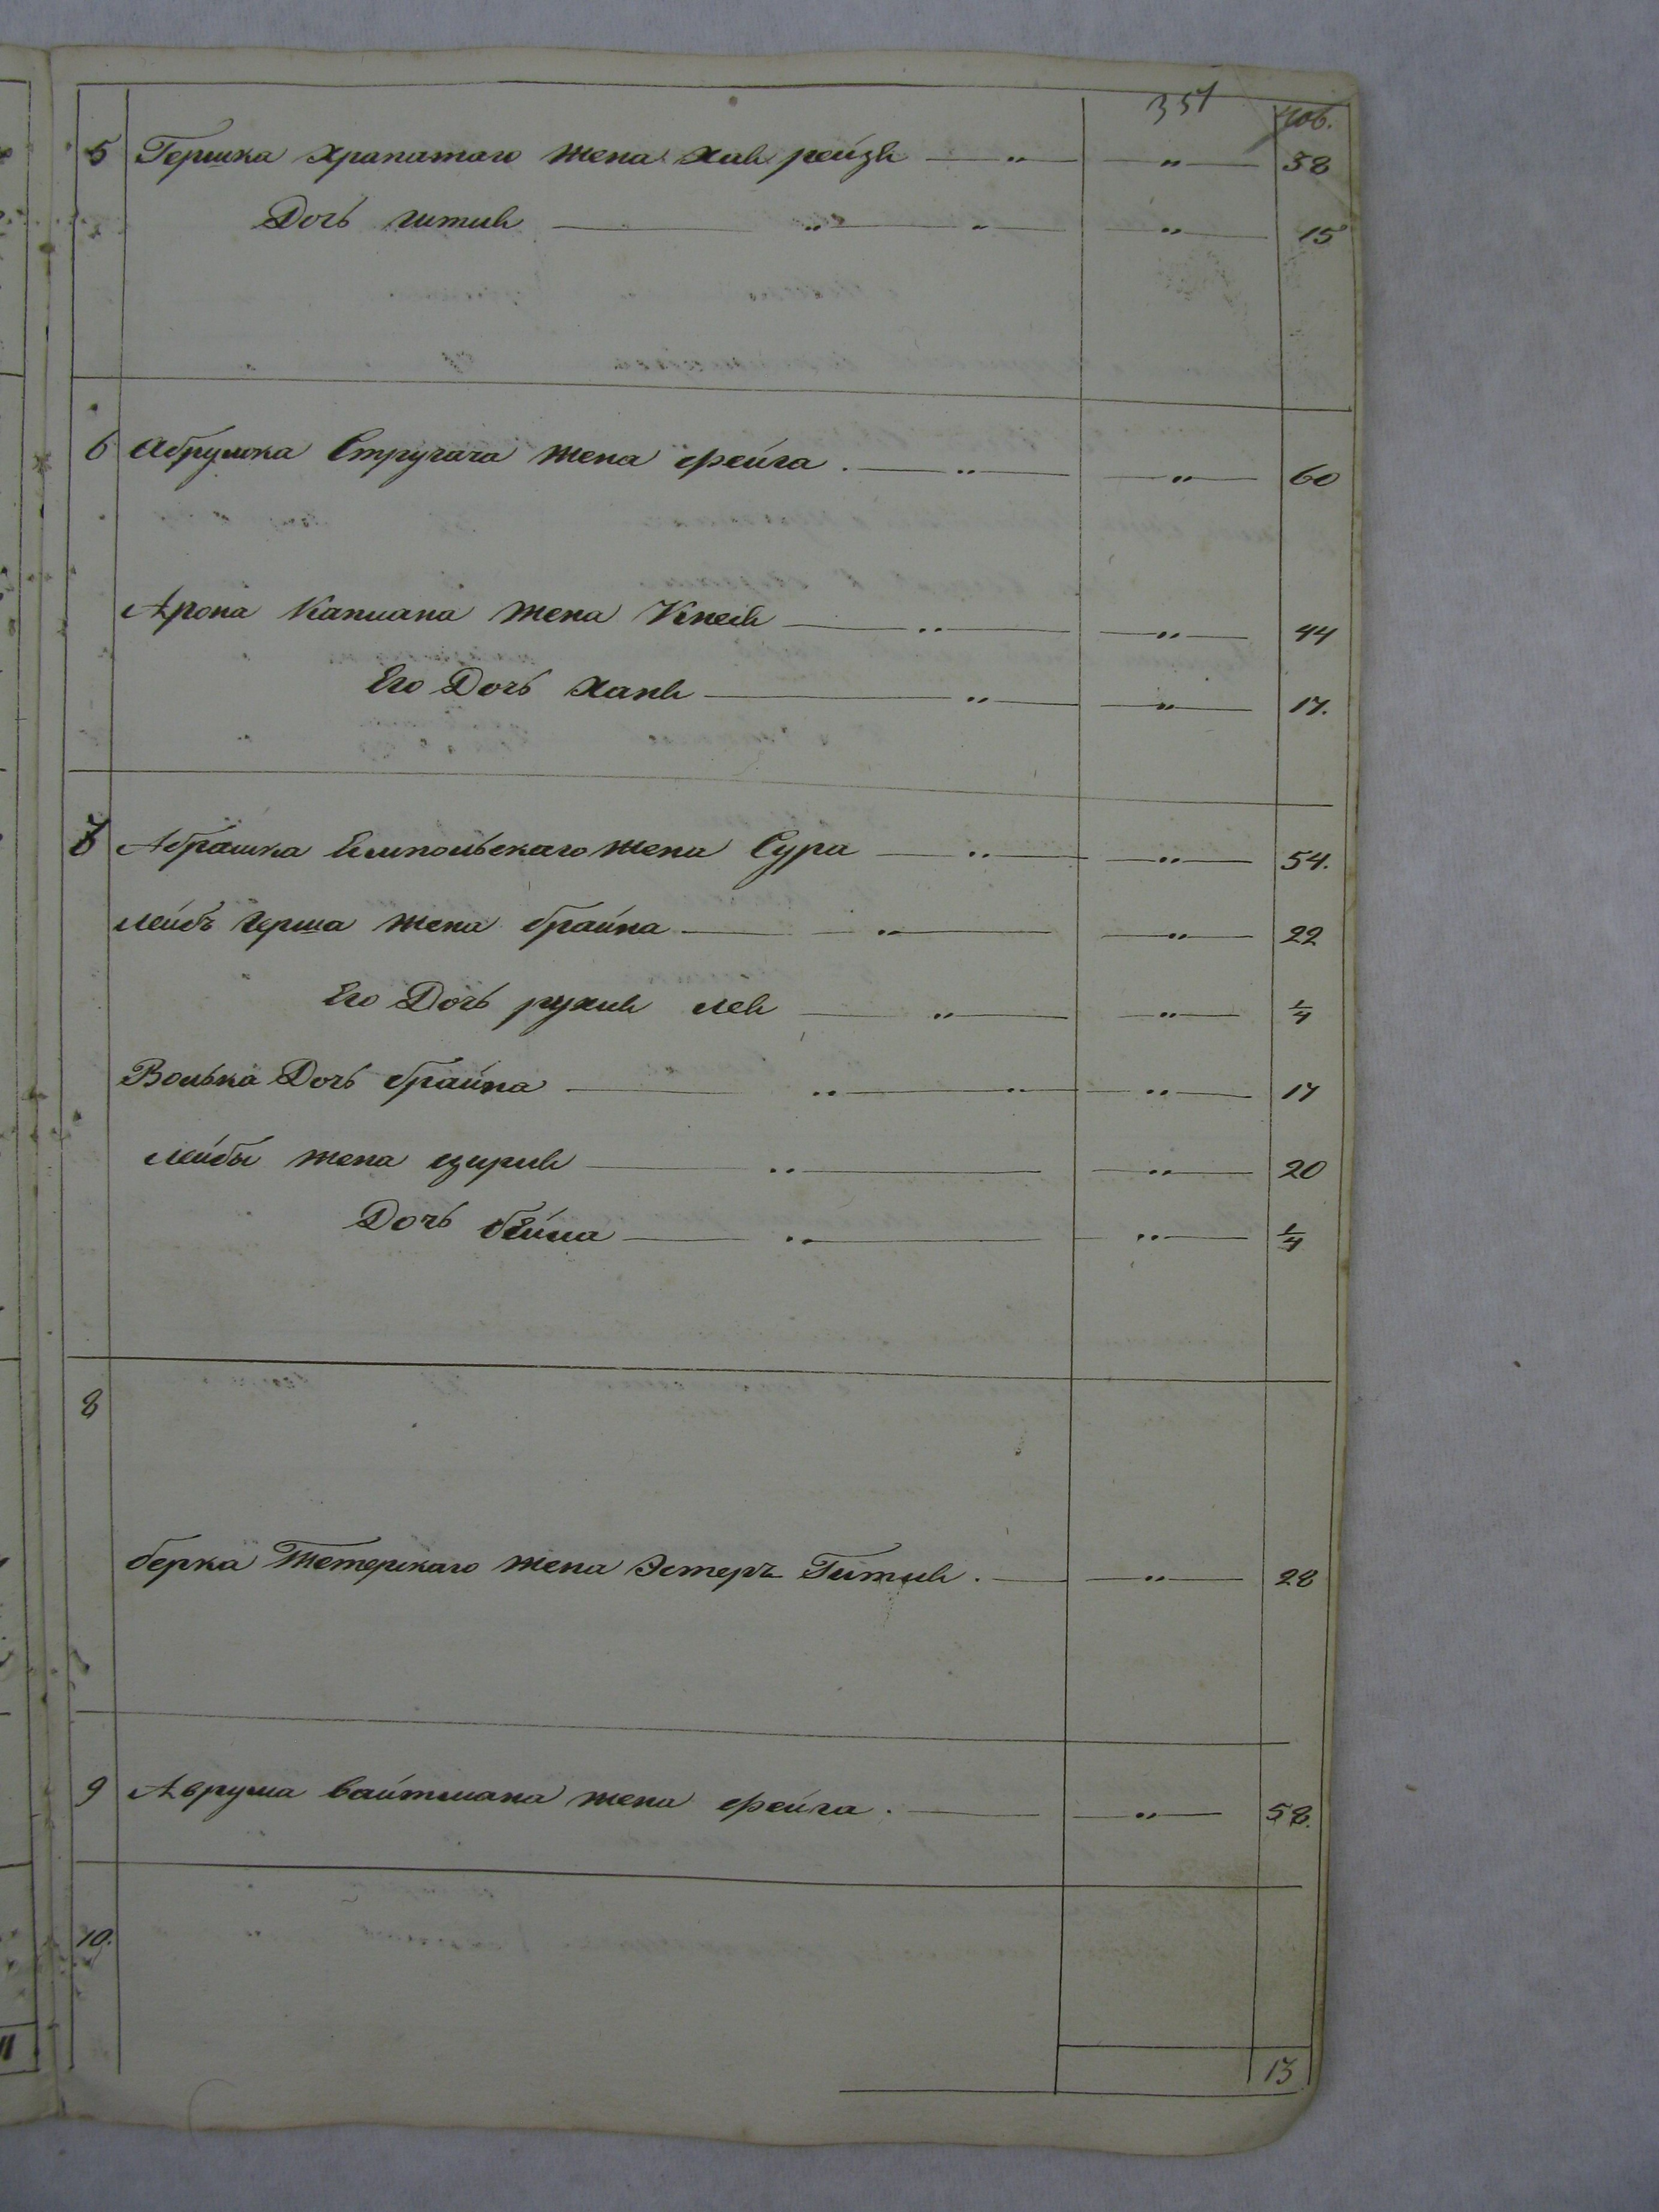 351
5 Гершка Храпатаго жена Хаѣ рейзѣ — " — " — 38
Дочь гитлѣ — " — " — " — 15
6 Абрумка Стругача жена фейга . — " — " — 60
Арона Капмана жена Кнейѣ — " — " — 44
Его Дочь Ханѣ — " — " — 17.
7 Абрашка Емпольскаго жена Сура — " — " — 54.
Лейбъ герша жена брайна — " — " — 22
Его Дочь рухлѣ леѣ — " — " — 1/4
Волька Дочь брайна — " — " — " — 17
Лейбы жена цирлѣ — " — " — 20
Дочь бейла — " — " — 1/4
8
берка Тетерскаго жена Эстеръ Гитлѣ . — " — 28
9 Аврума Вайтмана жена фейга . — " — 58.
10.
13